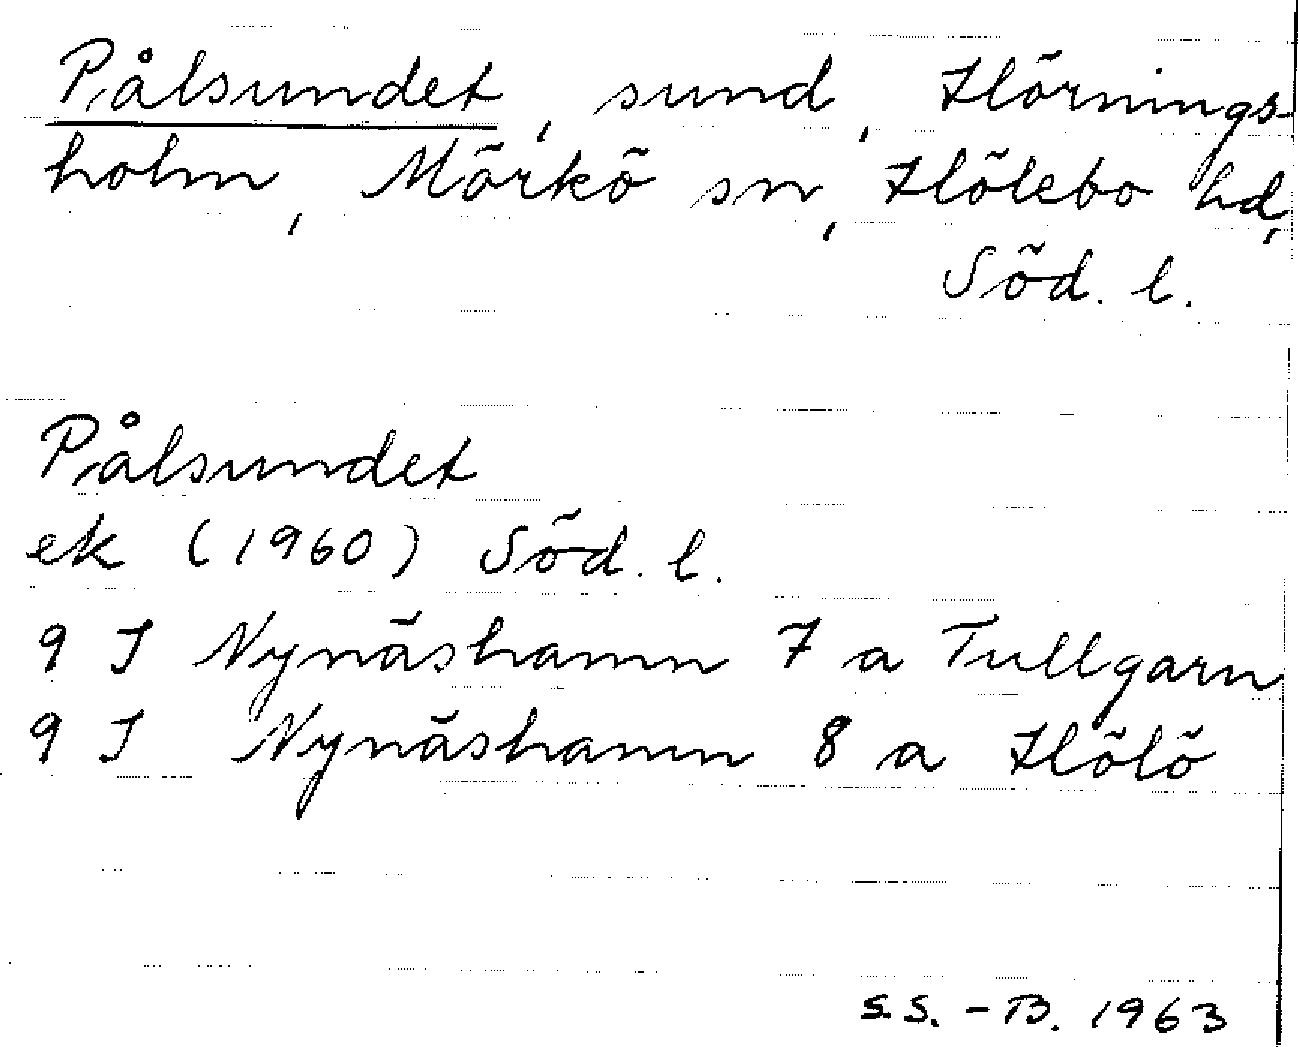 Pålsundet, sund, Hörnings-
holm, Mörkö sn, Hölebo hd,
Söd. l.
Pålsundet
ek (1960) Söd. l.
9 I Nynäshamn 7 a Tullgarn
9 I Nynäshamn 8 a Hölö
S.S. - B. 1963